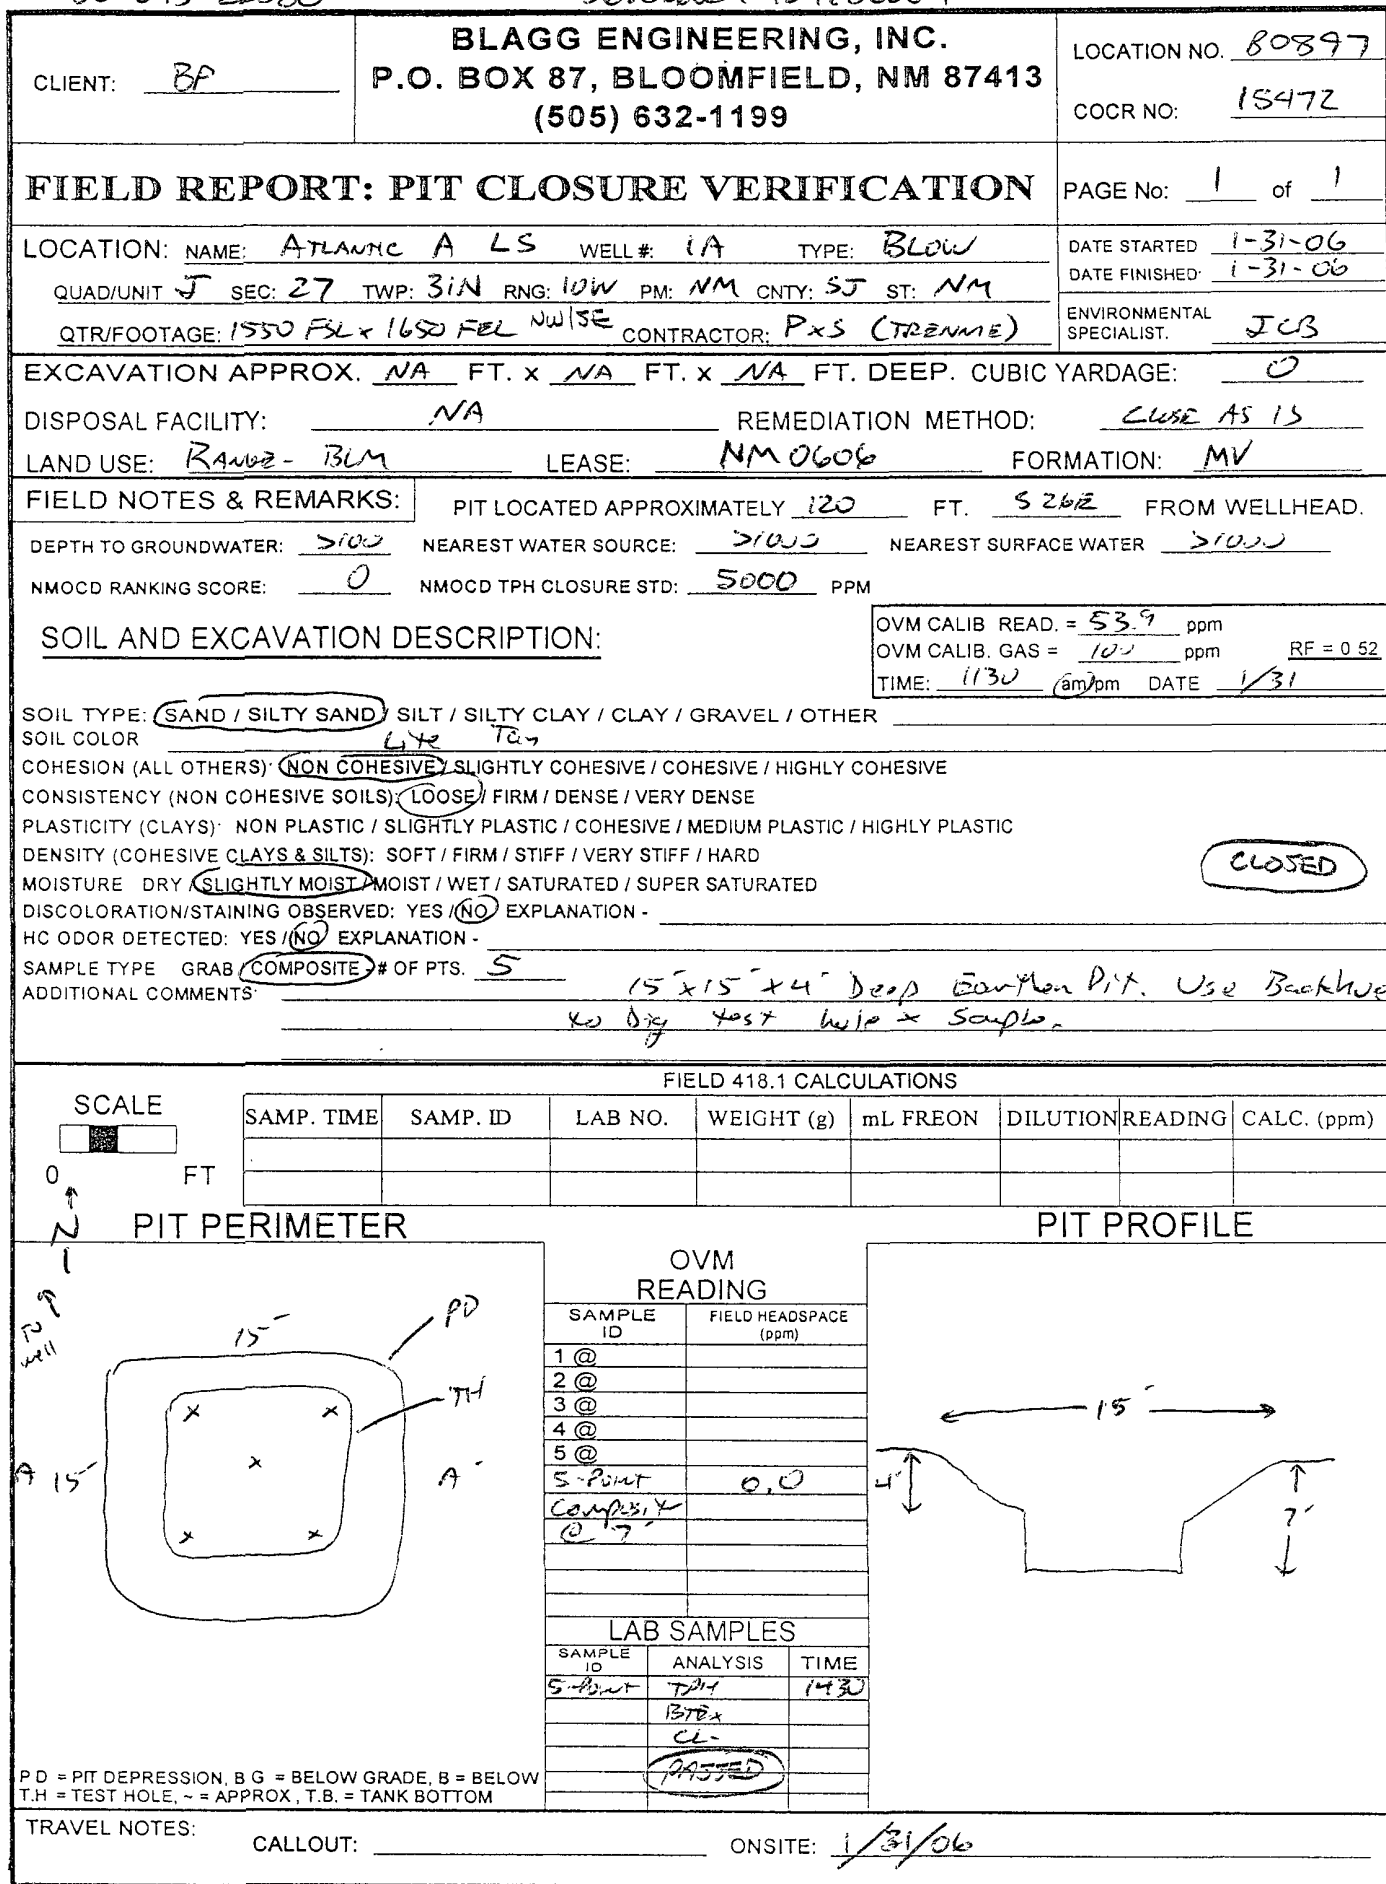 BLAGG ENGINEERING, INC.
P.O. BOX 87, BLOOMFIELD, NM 87413
(505) 632-1199
CLIENT: BP
LOCATION NO. 80897
COCR NO: 15472
FIELD REPORT: PIT CLOSURE VERIFICATION
PAGE No: 1 of 1
LOCATION: NAME: ATLANTIC A LS WELL #: 1A TYPE: BLOW
QUAD/UNIT J SEC: 27 TWP: 31N RNG: 10W PM: NM CNTY: SJ ST: NM
QTR/FOOTAGE: 1550 FSL x 1650 FEL NW/SE CONTRACTOR: PxS (TRENNIE)
DATE STARTED 1-31-06
DATE FINISHED 1-31-06
ENVIRONMENTAL
SPECIALIST. JCB
EXCAVATION APPROX. NA FT. x NA FT. x NA FT. DEEP. CUBIC YARDAGE: 0
DISPOSAL FACILITY: NA REMEDIATION METHOD: CLOSE AS IS
LAND USE: RANGE - BLM LEASE: NM 0606 FORMATION: MV
FIELD NOTES & REMARKS: PIT LOCATED APPROXIMATELY 120 FT. S26E FROM WELLHEAD.
DEPTH TO GROUNDWATER: >100 NEAREST WATER SOURCE: >1000 NEAREST SURFACE WATER >1000
NMOCD RANKING SCORE: 0 NMOCD TPH CLOSURE STD: 5000 PPM
SOIL AND EXCAVATION DESCRIPTION:
OVM CALIB READ. = 53.9 ppm
OVM CALIB. GAS = 100 ppm RF = 0 52
TIME: 1130 am/pm DATE 1/31
SOIL TYPE: SAND / SILTY SAND / SILT / SILTY CLAY / CLAY / GRAVEL / OTHER
SOIL COLOR Lite Tan
COHESION (ALL OTHERS): NON COHESIVE / SLIGHTLY COHESIVE / COHESIVE / HIGHLY COHESIVE
CONSISTENCY (NON COHESIVE SOILS): LOOSE / FIRM / DENSE / VERY DENSE
PLASTICITY (CLAYS): NON PLASTIC / SLIGHTLY PLASTIC / COHESIVE / MEDIUM PLASTIC / HIGHLY PLASTIC
DENSITY (COHESIVE CLAYS & SILTS): SOFT / FIRM / STIFF / VERY STIFF / HARD
CLOSED
MOISTURE DRY / SLIGHTLY MOIST / MOIST / WET / SATURATED / SUPER SATURATED
DISCOLORATION/STAINING OBSERVED: YES / NO EXPLANATION -
HC ODOR DETECTED: YES / NO EXPLANATION -
SAMPLE TYPE GRAB / COMPOSITE # OF PTS. 5
ADDITIONAL COMMENTS: 15' x 15' x 4' Deep Earthen Pit. Use Backhoe
to Dig test hole & Sample.
FIELD 418.1 CALCULATIONS
SCALE
0 FT
SAMP. TIME SAMP. ID LAB NO. WEIGHT (g) mL FREON DILUTION READING CALC. (ppm)
N
PIT PERIMETER
To well
15'
PD
TH
A 15' A'
OVM
READING
SAMPLE ID FIELD HEADSPACE (ppm)
1 @
2 @
3 @
4 @
5 @
5-Point 0.0
Composite
@ 7'
LAB SAMPLES
SAMPLE ID ANALYSIS TIME
5-Point TPH 1430
BTEX
CL-
PASSED
PIT PROFILE
15'
4'
7'
P D = PIT DEPRESSION, B G = BELOW GRADE, B = BELOW
T.H = TEST HOLE, ~ = APPROX, T.B. = TANK BOTTOM
TRAVEL NOTES: CALLOUT: ONSITE: 1/31/06